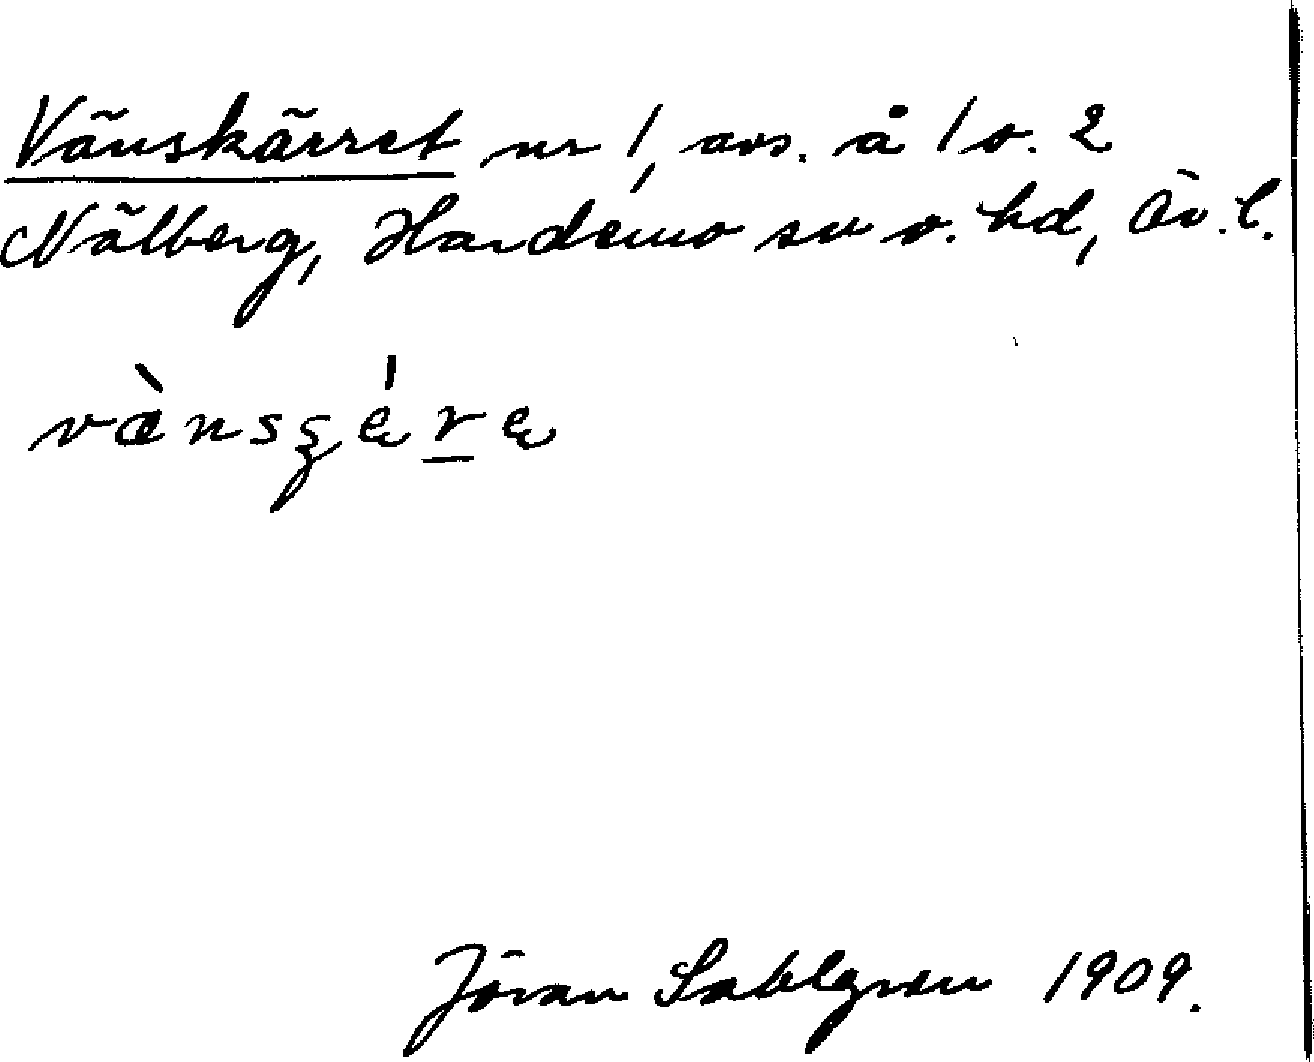 Vänskärret nr 1, avs. å 1 o. 2
Nälberg, Hardemo sn o. hd, Ör. l.
vànsʒę́rę
Jöran Sahlgren 1909.